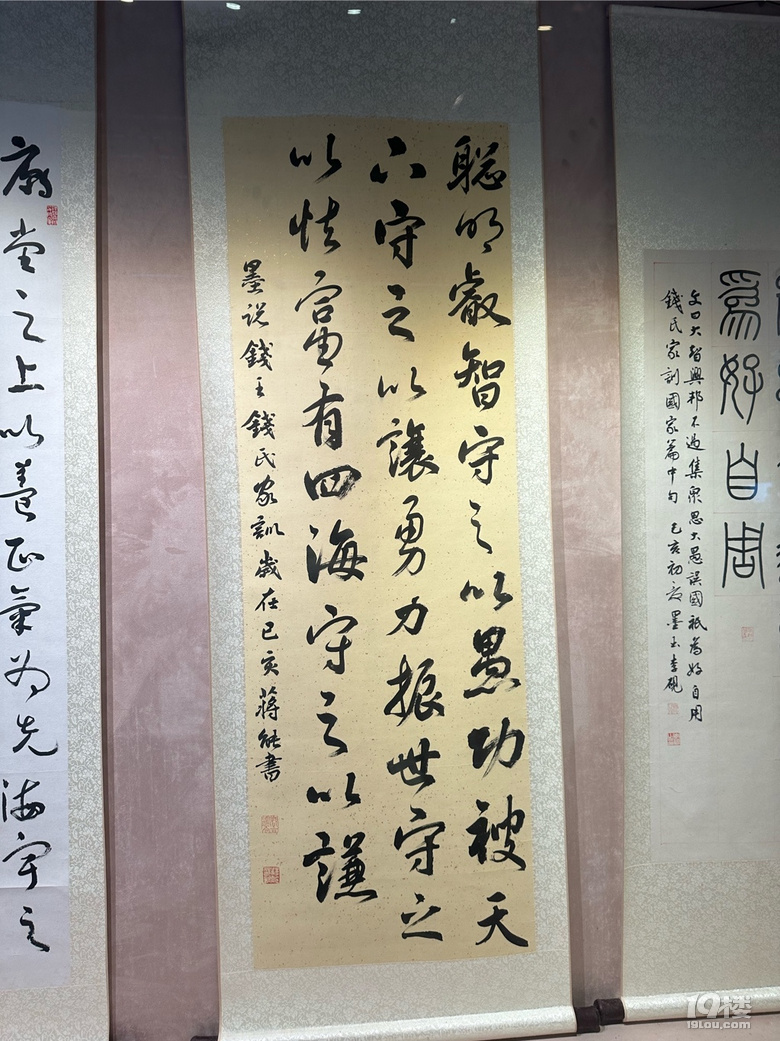 爲好自用
文曰大智興邦不過集衆思大愚誤國祇為好自用
錢氏家訓國家篇中句 己亥初夏墨玉李硯
聪明叡智守之以愚功被天
下守之以讓勇力振世守之
以怯富有四海守之以謙
墨说錢王錢氏家訓歲在己亥蔣能書
廟堂之上以養正氣为先海宇之
19楼
19lou.com